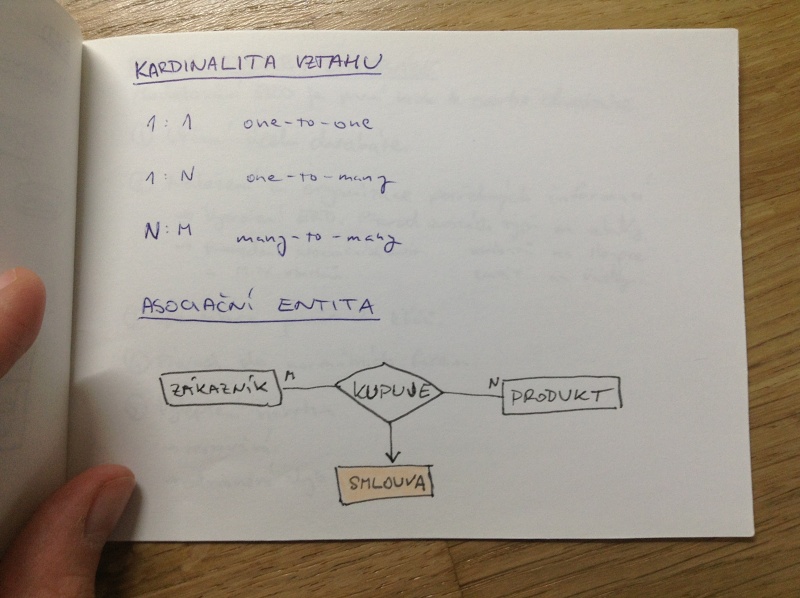 KARDINALITA VZTAHU
1:1 one-to-one
1:N one-to-many
N:M many-to-many
ASOCIAČNÍ ENTITA
ZÁKAZNÍK M KUPUJE N PRODUKT
SMLOUVA